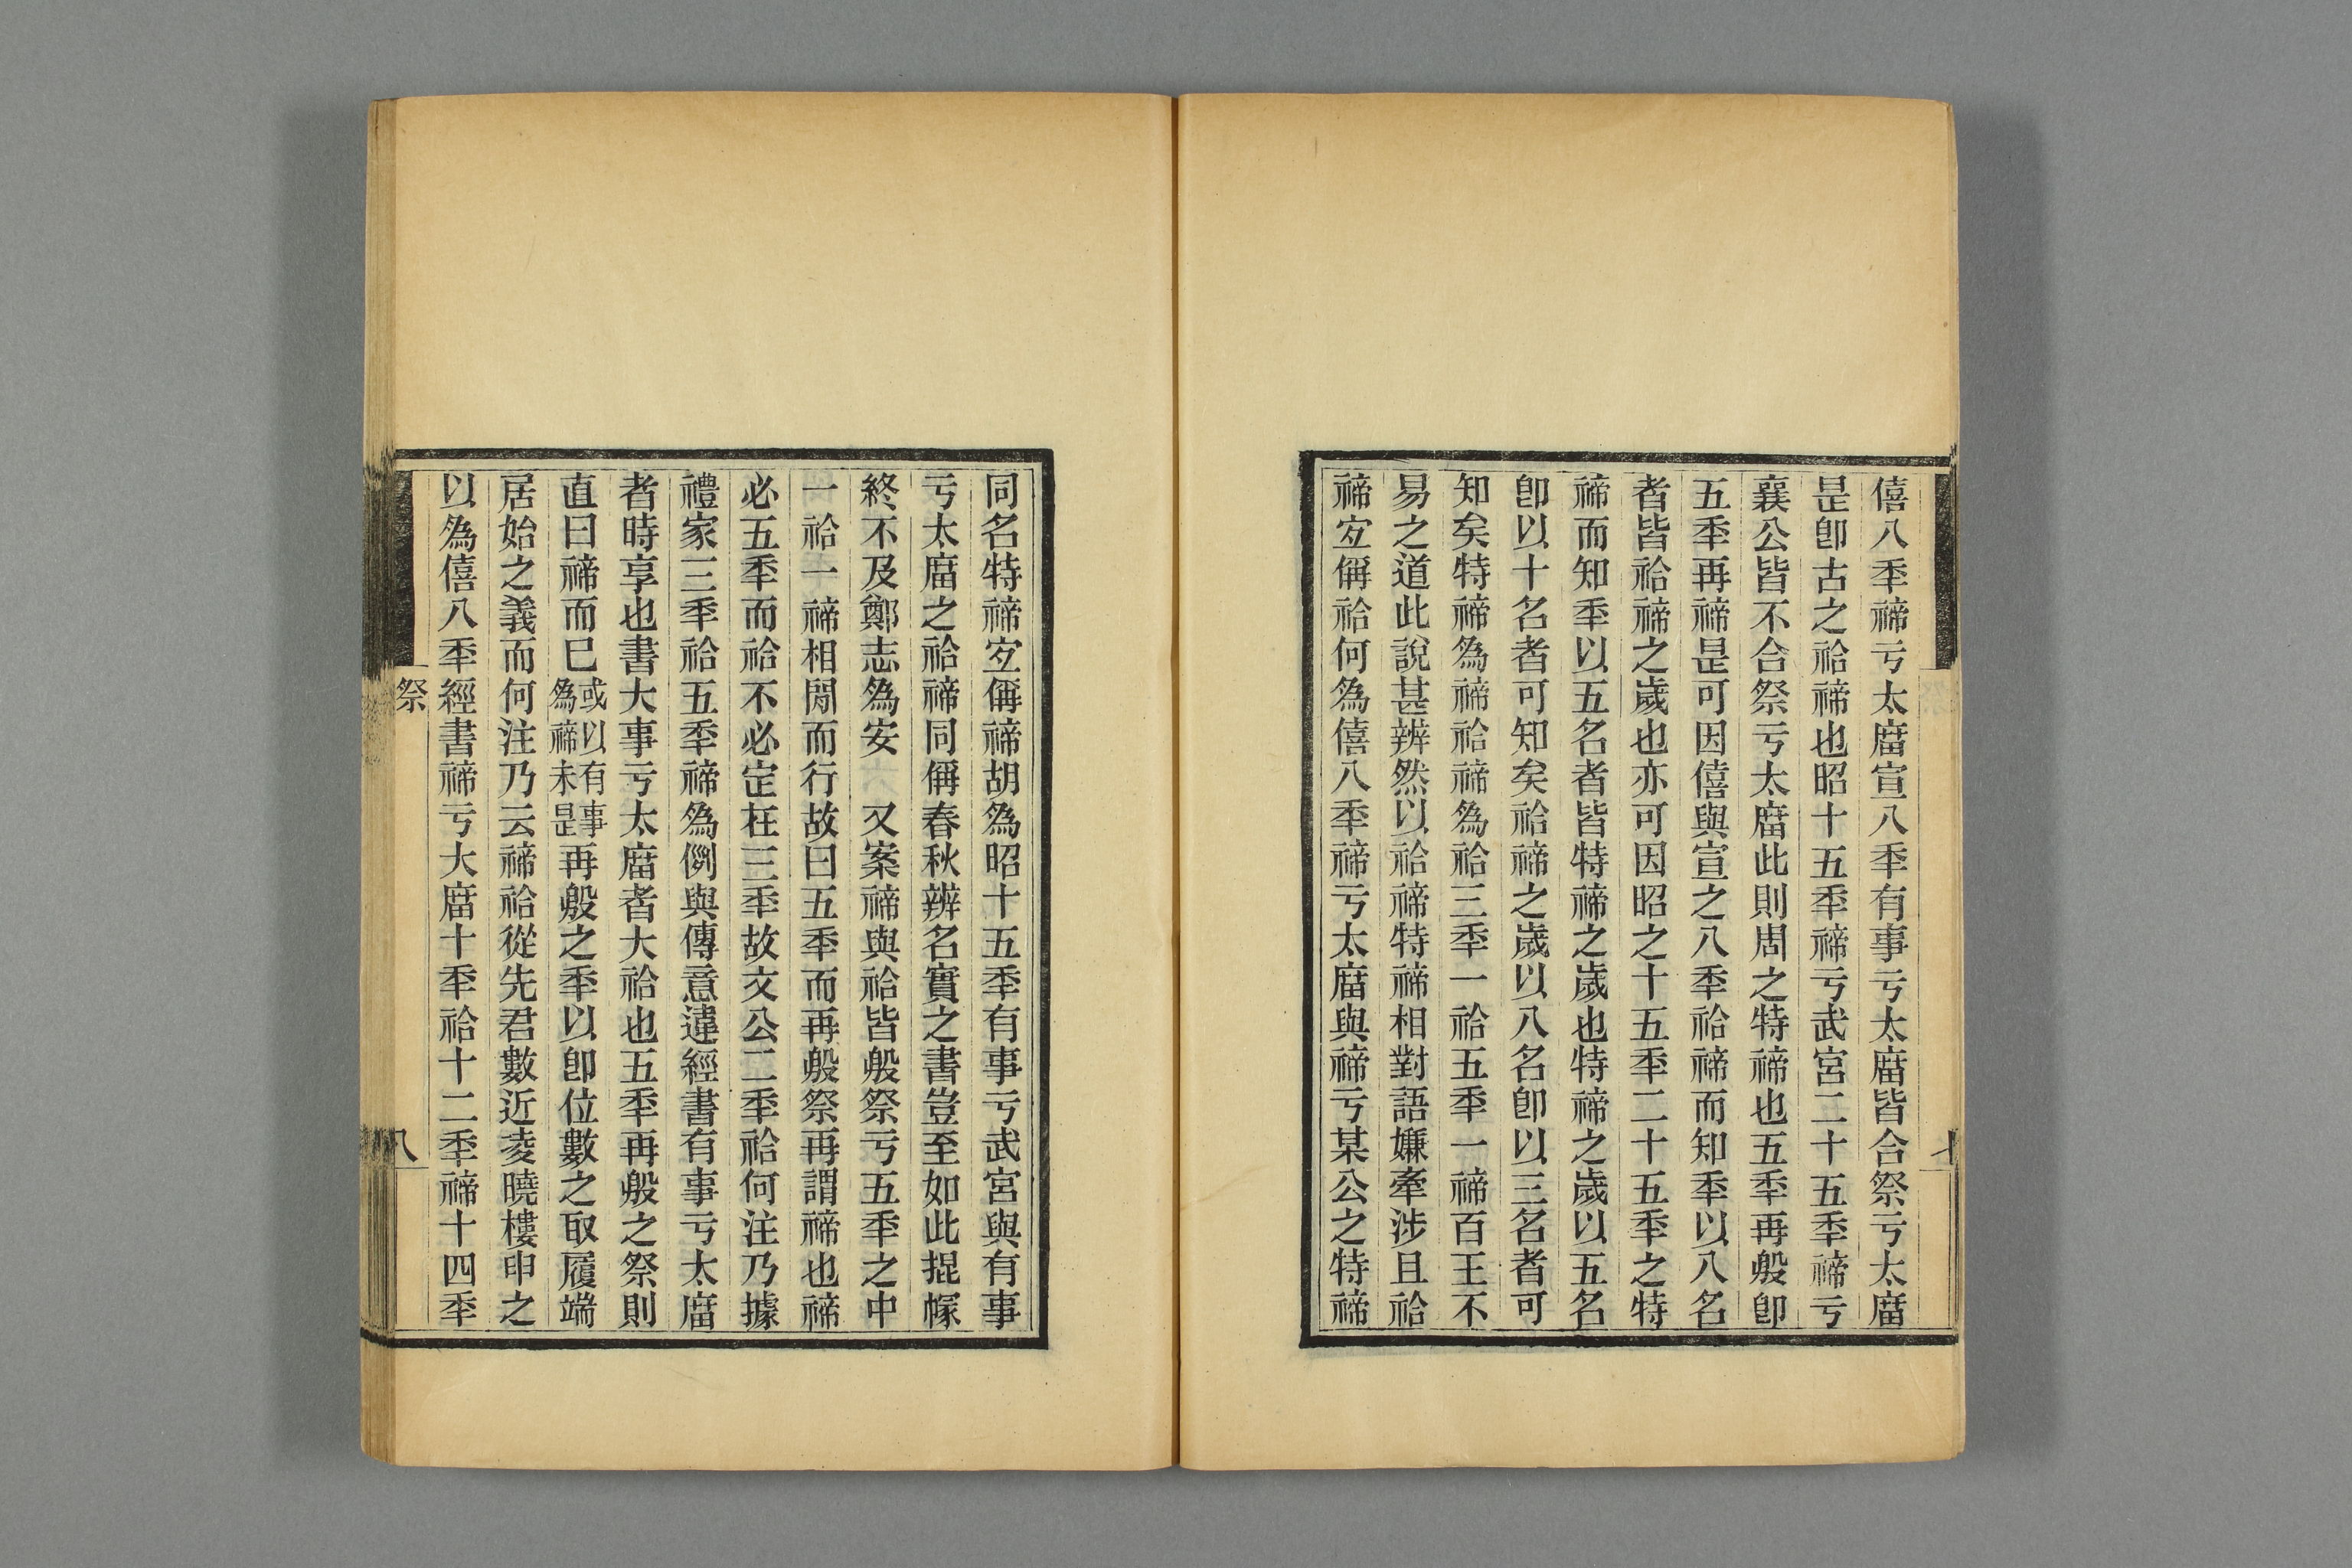 僖八秊禘亏太庿宣八秊有事亏太庿皆合祭亏太庿
昰卽古之祫禘也昭十五秊禘亏武宮二十五秊禘亏
襄公皆不合祭亏太庿此則周之特禘也五秊再殷卽
五秊再禘昰可因僖與宣之八秊祫禘而知秊以八名
者皆祫禘之歲也亦可因昭之十五秊二十五秊之特
禘而知秊以五名者皆特禘之歲也特禘之歲以五名
卽以十名者可知矣祫禘之歲以八名卽以三名者可
知矣特禘爲禘祫禘爲祫三秊一祫五秊一禘百王不
易之道此說甚辨然以祫禘特禘相對語嫌牽涉且祫
禘㝎偁祫何爲僖八秊禘亏太庿與禘亏某公之特禘
七
同名特禘㝎偁禘胡爲昭十五秊有事亏武宮與有事
亏太庿之祫禘同偁春秋辨名實之書豈至如此掍㡓
終不及鄭志爲安　又案禘與祫皆殷祭亏五秊之中
一祫一禘相閒而行故曰五秊而再殷祭再謂禘也禘
必五秊而祫不必定在三秊故文公二秊祫何注乃據
禮家三秊祫五秊禘爲例與傳意違經書有事亏太庿
者時享也書大事亏太庿者大祫也五秊再殷之祭則
直曰禘而已或以有事爲禘未昰再殷之秊以卽位數之取履端
居始之義而何注乃云禘祫從先君數近凌曉樓申之
以爲僖八秊經書禘亏大庿十秊祫十二秊禘十四秊
祭
八